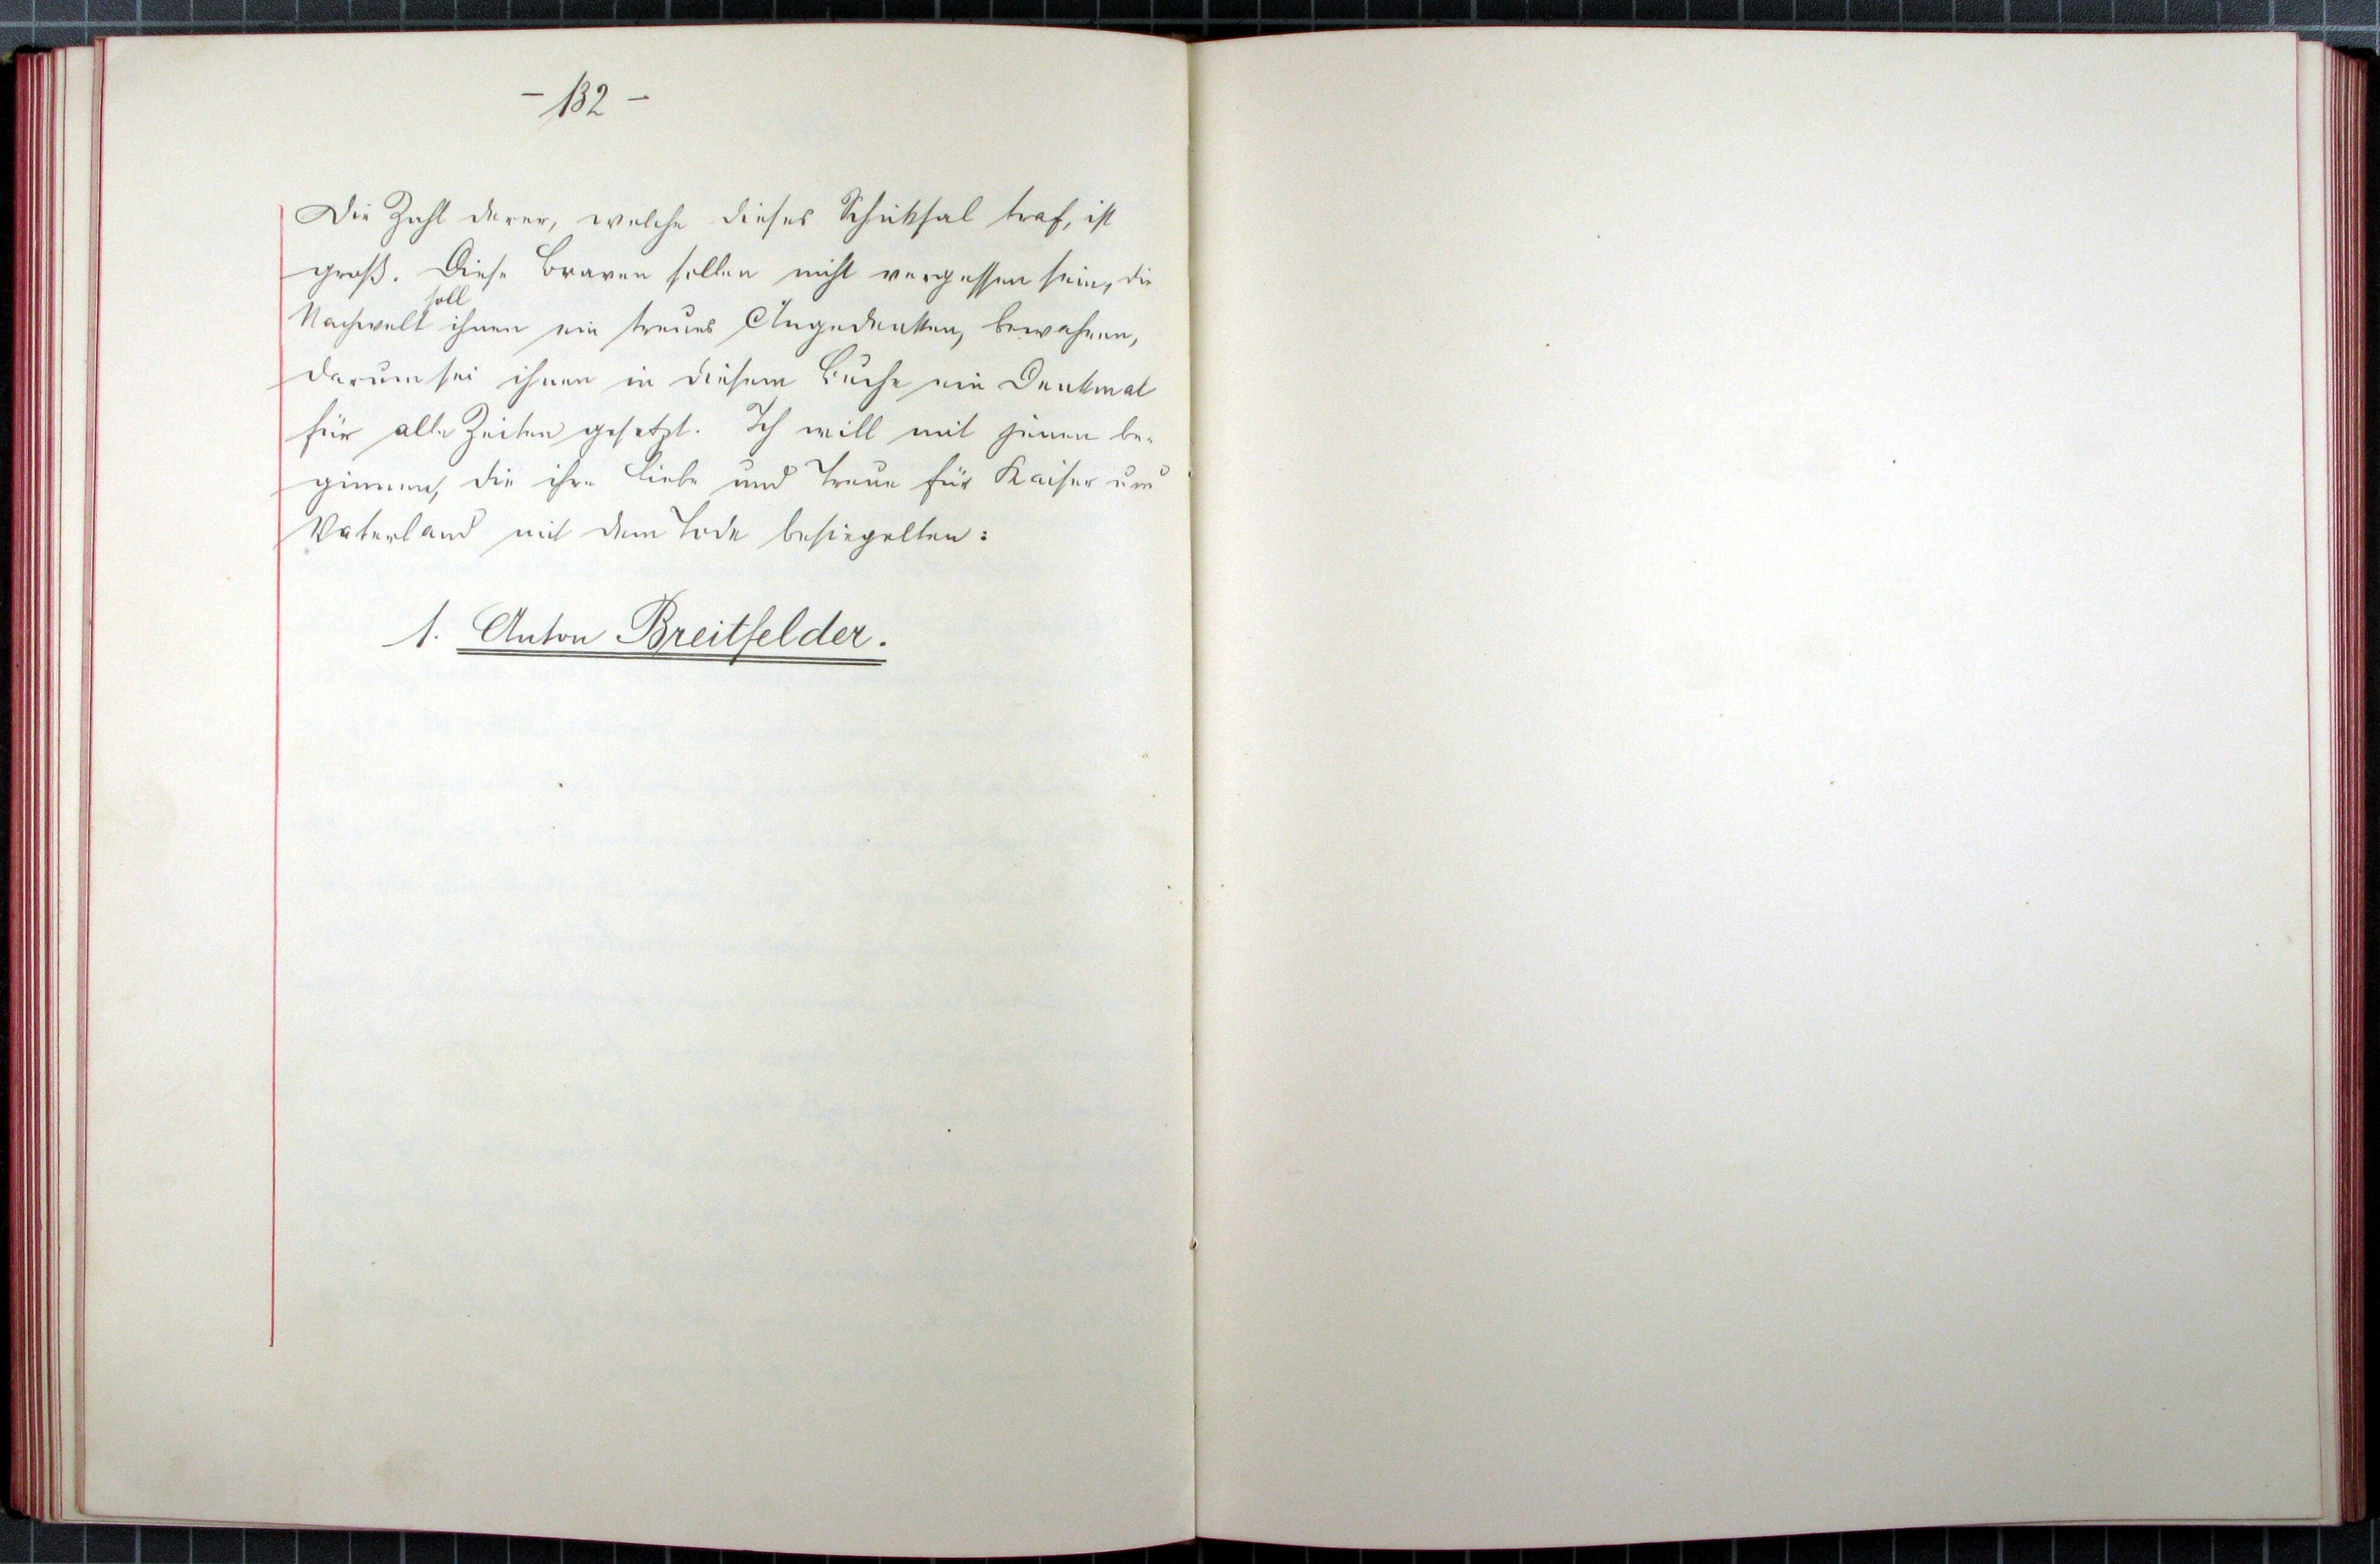 - 132 -
Die Zahl derer, welche dieses Schicksal traf, ist
groß. Diese Braven sollen nicht vergessen sein, die
soll
Nachwelt ihnen ein treues Angedenken, bewahren,
darum sei ihnen in diesem Buche ein Denkmal
für alle Zeiten gesetzt. Ich will mit jenen be-
ginnen, die ihre Liebe und Treue für Kaiser und
Vaterland mit dem Tode besiegelten:
1. Anton Breitfelder.